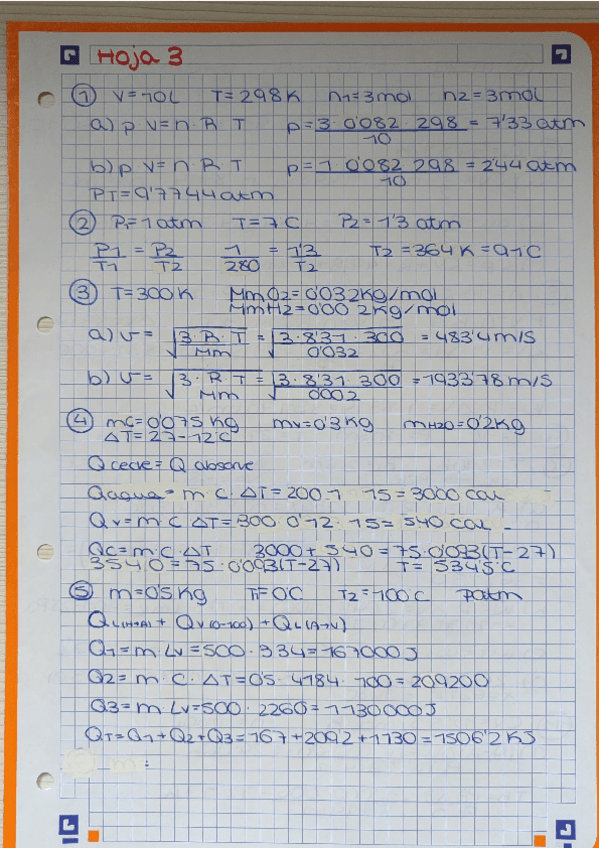 Hoja 3
① V=10L T=298K n1=3mol n2=3mol
a) p V=n·R·T p=3·0'082·298/10=7'33 atm
b) p V=n·R·T p=1·0'082·298/10=2'44 atm
PT=9'7744 atm
② P1=1 atm T=7C P2=1'3 atm
P1/T1=P2/T2 1/280=1'3/T2 T2=364K=91C
③ T=300K Mm O2=0'032Kg/mol
Mm H2=0'002Kg/mol
a) v=√3·R·T/Mm=√3·8'31·300/0'032=483'4 m/s
b) v=√3·R·T/Mm=√3·8'31·300/0'002=1933'78 m/s
④ mc=0'075 Kg mv=0'3 Kg mH2O=0'2Kg
ΔT=27-12°C
Q cede=Q absorve
Qagua=m·c·ΔT=200·1·15=3000 cal
Qv=m·c·ΔT=300·0'12·15=540 cal
Qc=m·c·ΔT 3000+540=75·0'093(T-27)
3540=75·0'093(T-27) T=534'5°C
⑤ m=0'5Kg Ti=0C T2=100C Patm
QL(H→A)+QV(0-100)+QL(A→V)
Q1=m·Lv=500·334=167000J
Q2=m·c·ΔT=0'5·4184·100=209200
Q3=m·Lv=500·2260=1130000J
QT=Q1+Q2+Q3=167+209'2+1130=1506'2KJ